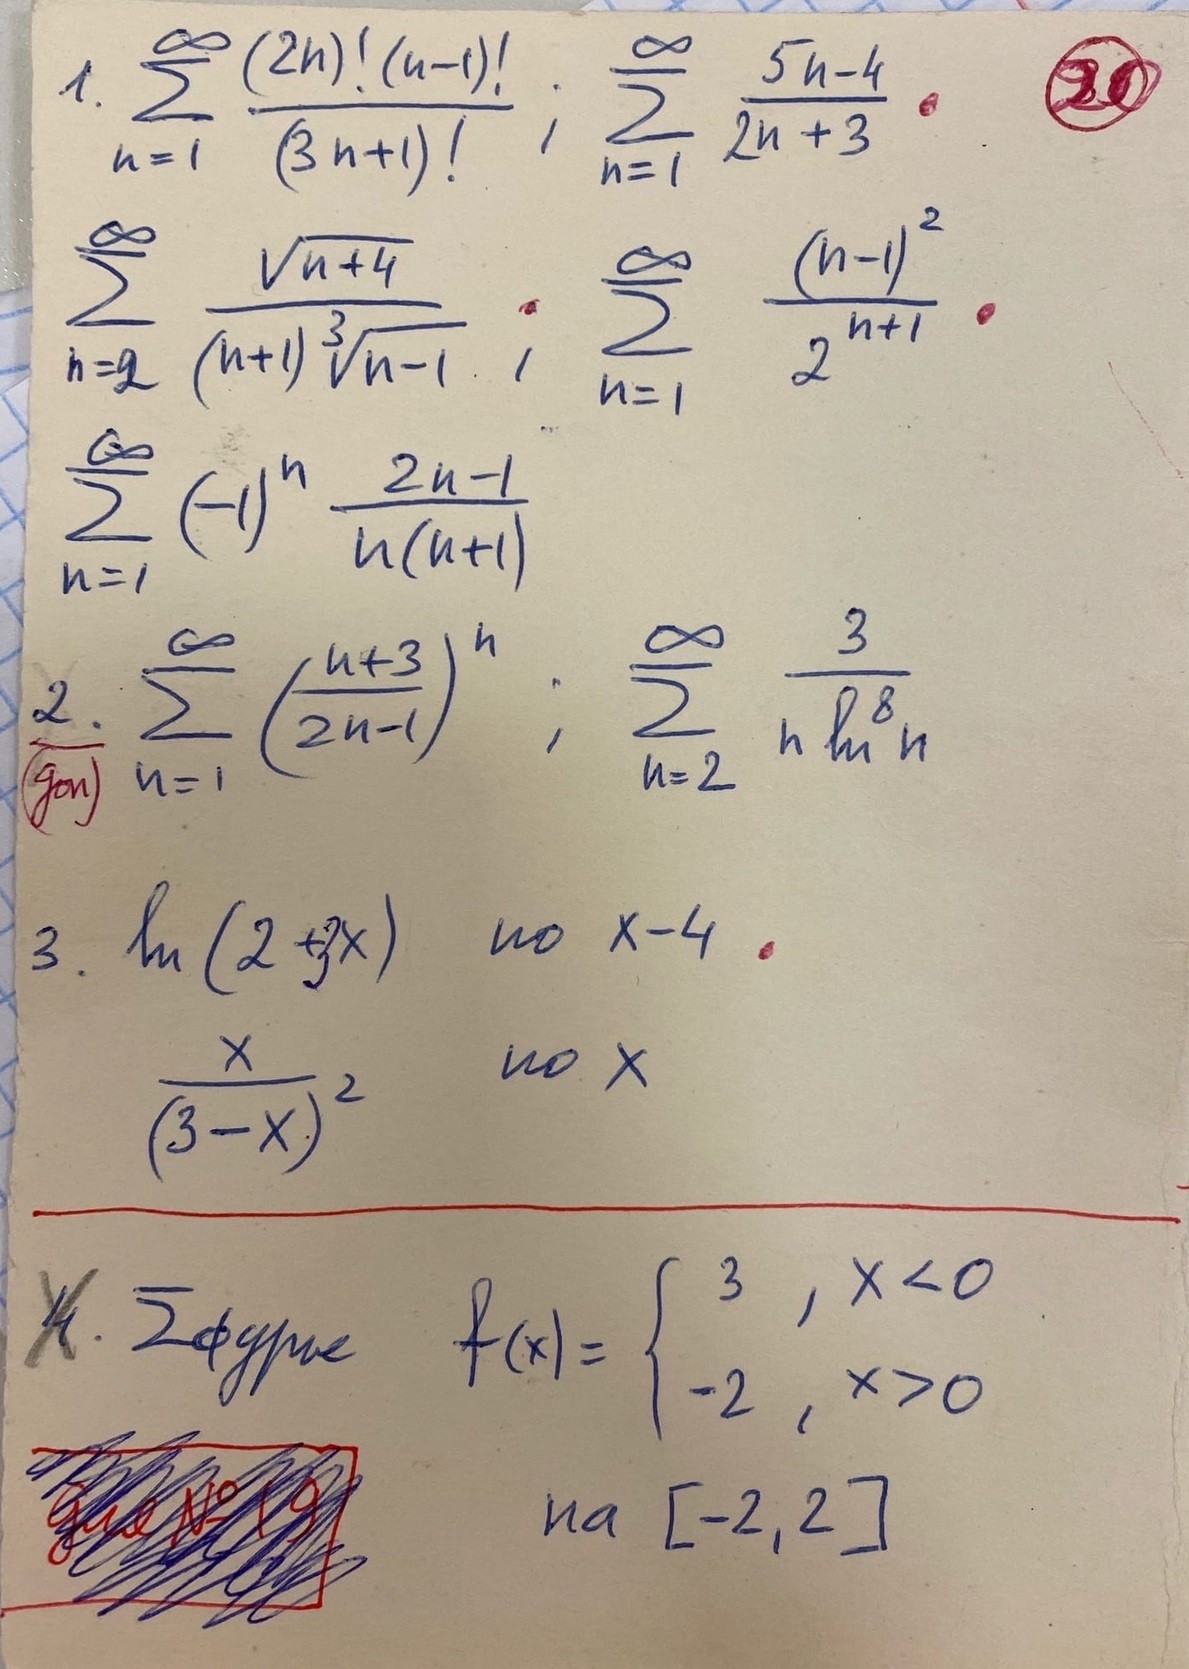 1. ∞∑n=1 (2n)!(n-1)!/(3n+1)! ; ∞∑n=1 (5n-4)/(2n+3) . 20
∞∑n=2 √(n+4)/((n+1)∛(n-1)) ; ∞∑n=1 (n-1)²/2ⁿ⁺¹ .
∞∑n=1 (-1)ⁿ (2n-1)/(n(n+1))
2. ∞∑n=1 ((n+3)/(2n-1))ⁿ ; ∞∑n=2 3/(n ln⁸ n)
(доп)
3. ln(2+3x) по x-4 .
x/(3-x)² по x
4. ∑ Фурье f(x) = { 3 , x<0
-2 , x>0
на [-2,2]